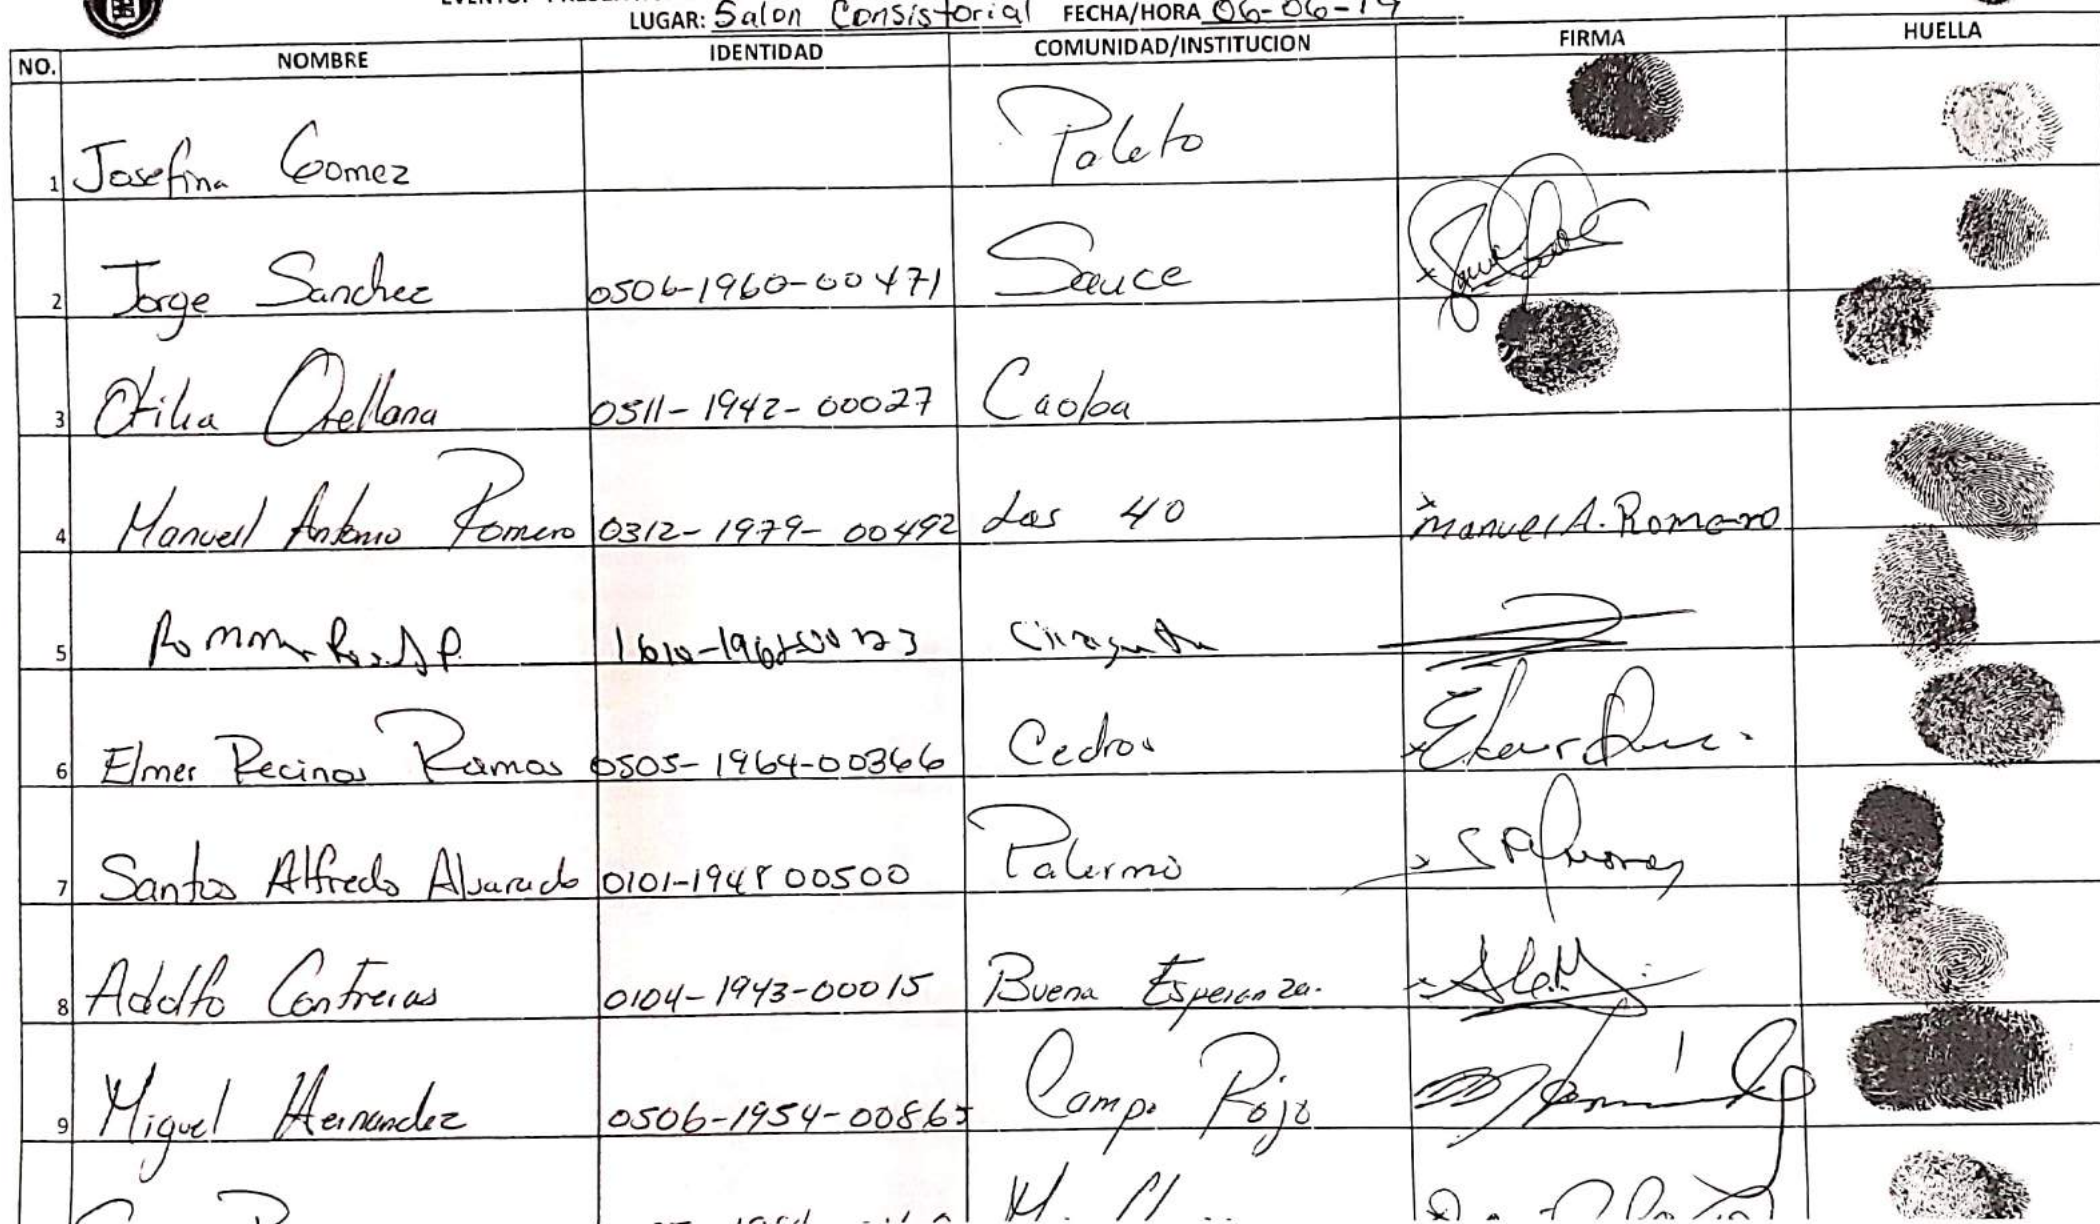 LUGAR: Salon Consistorial FECHA/HORA 06-06-19
NO. NOMBRE IDENTIDAD COMUNIDAD/INSTITUCION FIRMA HUELLA
1 Josefina Gomez Paleto
2 Jorge Sanchez 0506-1960-00471 Sauce
3 Otilia Orellana 0511-1942-00027 Caoba
4 Manuel Antonio Romero 0312-1979-00492 Las 40 Manuel A. Romero
5
6 Elmer Recinos Ramos 0505-1964-00366 Cedros
7 Santos Alfredo Alvarado 0101-1948 00500 Palermo
8 Adolfo Contreras 0104-1943-00015 Buena Esperanza.
9 Miguel Hernandez 0506-1954-00865 Campo Rojo